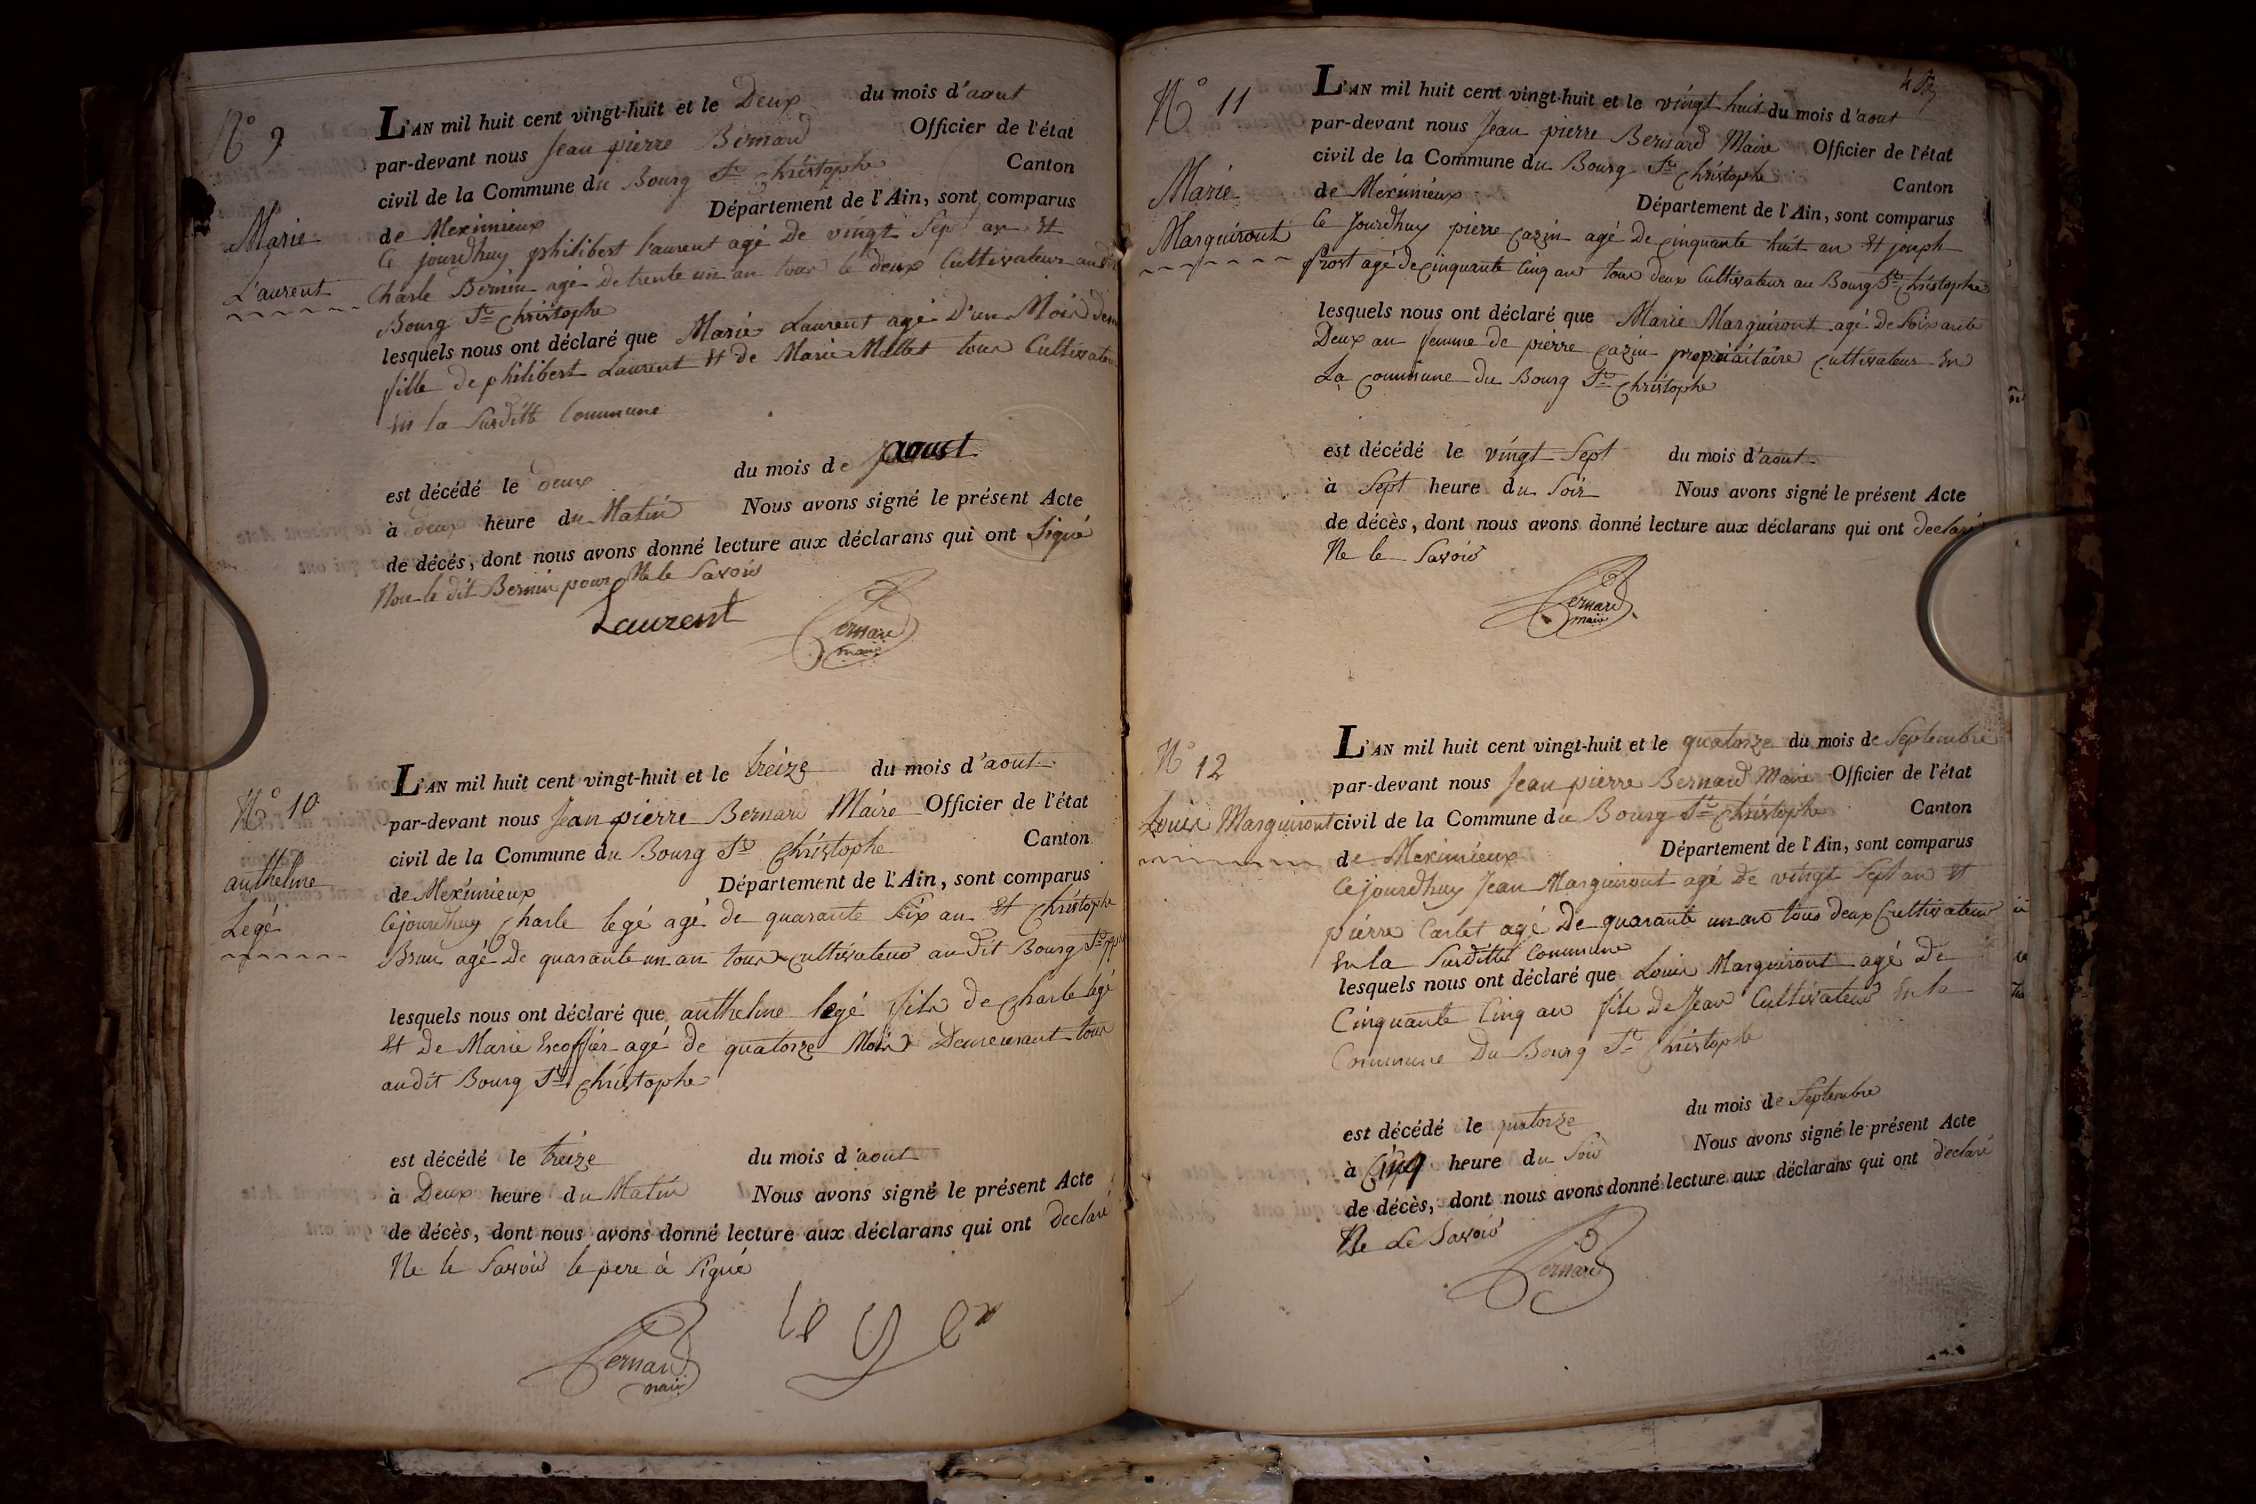 N° 9
Marie
Laurent
L'AN mil huit cent vingt-huit et le Deux du mois d'aout
par-devant nous Jean pierre Bernard Officier de l'état
civil de la Commune du Bourg St christophe Canton
de Meximieux Département de l'Ain, sont comparus
Ce jourdhuy philibert laurent agé De vingt Sept an Et
Charle Bernin agé De trente un an tous le deux Cultivateur audit
Bourg St christophe
lesquels nous ont déclaré que Marie Laurent agé D'un Mois
fille de philibert Laurent Et de Marie Mallet tous Cultivateur
En la Susditte Commune
est décédé le deux du mois de aoust
à deux heure du Matin Nous avons signé le présent Acte
de décés, dont nous avons donné lecture aux déclarans qui ont Signé
Non le dit Bernin pour Ne le Savoir
Laurent
Bernard
maire
N° 10
antheline
Legé
L'AN mil huit cent vingt-huit et le treize du mois d'aout
par-devant nous Jean pierre Bernard Maire Officier de l'état
civil de la Commune du Bourg St christophe Canton
de Meximieux Département de l'Ain, sont comparus
Cejourdhuy Charle legé agé de quarante Six an Et Christophe
Brun agé De quarante un an tous cultivateur audit Bourg St
lesquels nous ont déclaré que antheline legé fils de Charle legé
Et De Marie Escoffier agé de quatorze Mois Demeurant tous
audit Bourg St christophe
est décédé le treize du mois d'aout
à Deux heure du Matin Nous avons signé le présent Acte
de décès, dont nous avons donné lecture aux déclarans qui ont declaré
Ne le Savoir le pere à Signé
Bernard
maire
N° 11
Marie
Marguiront
L'AN mil huit cent vingt-huit et le vingt huit du mois d'aout
par-devant nous Jean pierre Bernard Maire Officier de l'état
civil de la Commune du Bourg St christophe Canton
de Meximieux Département de l'Ain, sont comparus
Ce Jourdhuy pierre cazin agé De cinquante huit an Et joseph
Prost agé de cinquante Cinq an tous deux Cultivateur au Bourg St christophe
lesquels nous ont déclaré que Marie Marguiront agé de Soixante
Deux an femme de pierre cazin propriaitaire cultivateur En
La Commune du Bourg St Christophe
est décédé le vingt Sept du mois d'aout
à Sept heure du Soir Nous avons signé le présent Acte
de décès, dont nous avons donné lecture aux déclarans qui ont declaré
Ne le Savoir
Bernard
maire
N° 12
Louis Marguiront
L'AN mil huit cent vingt-huit et le quatorze du mois de Septembre
par-devant nous Jean pierre Bernard Maire Officier de l'état
civil de la Commune du Bourg St christophe Canton
de Meximieux Département de l'Ain, sont comparus
Cejourdhuy Jean Marguiront agé De vingt Sept an Et
pierre Carlet agé De quarante un an tous deux Cultivateur
En la Susditte Commune
lesquels nous ont déclaré que Louis Marguiront agé De
Cinquante Cinq an fils De Jean Cultivateur En la
Commune Du Bourg St Christophe
est décédé le quatorze du mois de Septembre
à Cinq heure du Soir Nous avons signé le présent Acte
de décès, dont nous avons donné lecture aux déclarans qui ont declaré
Ne Le Savoir
Bernard